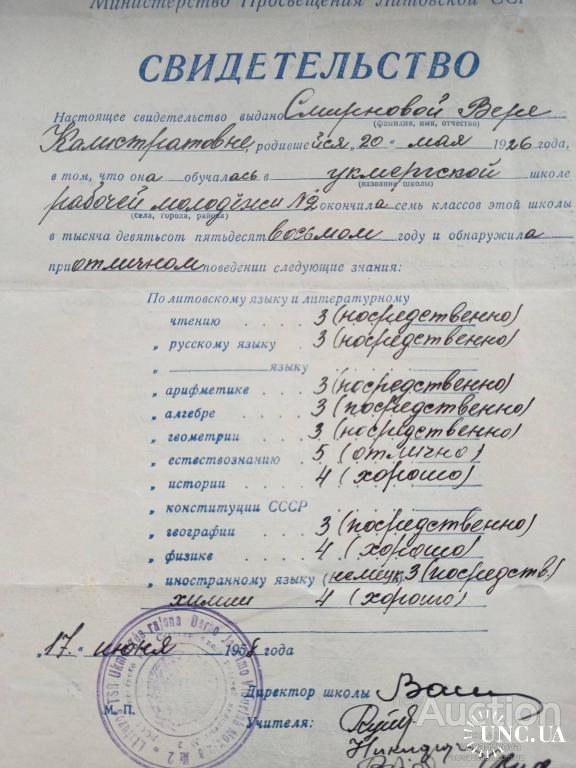 Министерство Просвещения Литовской ССР
СВИДЕТЕЛЬСТВО
Настоящее свидетельство выдано Смирновой Вере
(фамилия, имя, отчество)
Калистратовне, родившейся 20 мая 1926 года,
в том, что она обучалась в укмергской школе
(название школы)
рабочей молодёжи №2 окончила семь классов этой школы
(села, города, района)
в тысяча девятьсот пятьдесят восьмом году и обнаружила
при отличном поведении следующие знания:
По литовскому языку и литературному
чтению . . . . 3 (посредственно)
„ русскому языку . 3 (посредственно)
„ языку
„ арифметике . . . 3 (посредственно)
„ алгебре . . . . 3 (посредственно)
„ геометрии . . . 3 (посредственно)
„ естествознанию . 5 (отлично)
„ истории . . . . 4 (хорошо)
„ конституции СССР
„ географии . . . 3 (посредственно)
„ физике . . . . 4 (хорошо)
„ иностранному языку (немецк) 3 (посредств.)
химии 4 (хорошо)
„17“ июня 1958 года
Директор школы
М. П.
Учителя:
Auction
UNC.UA